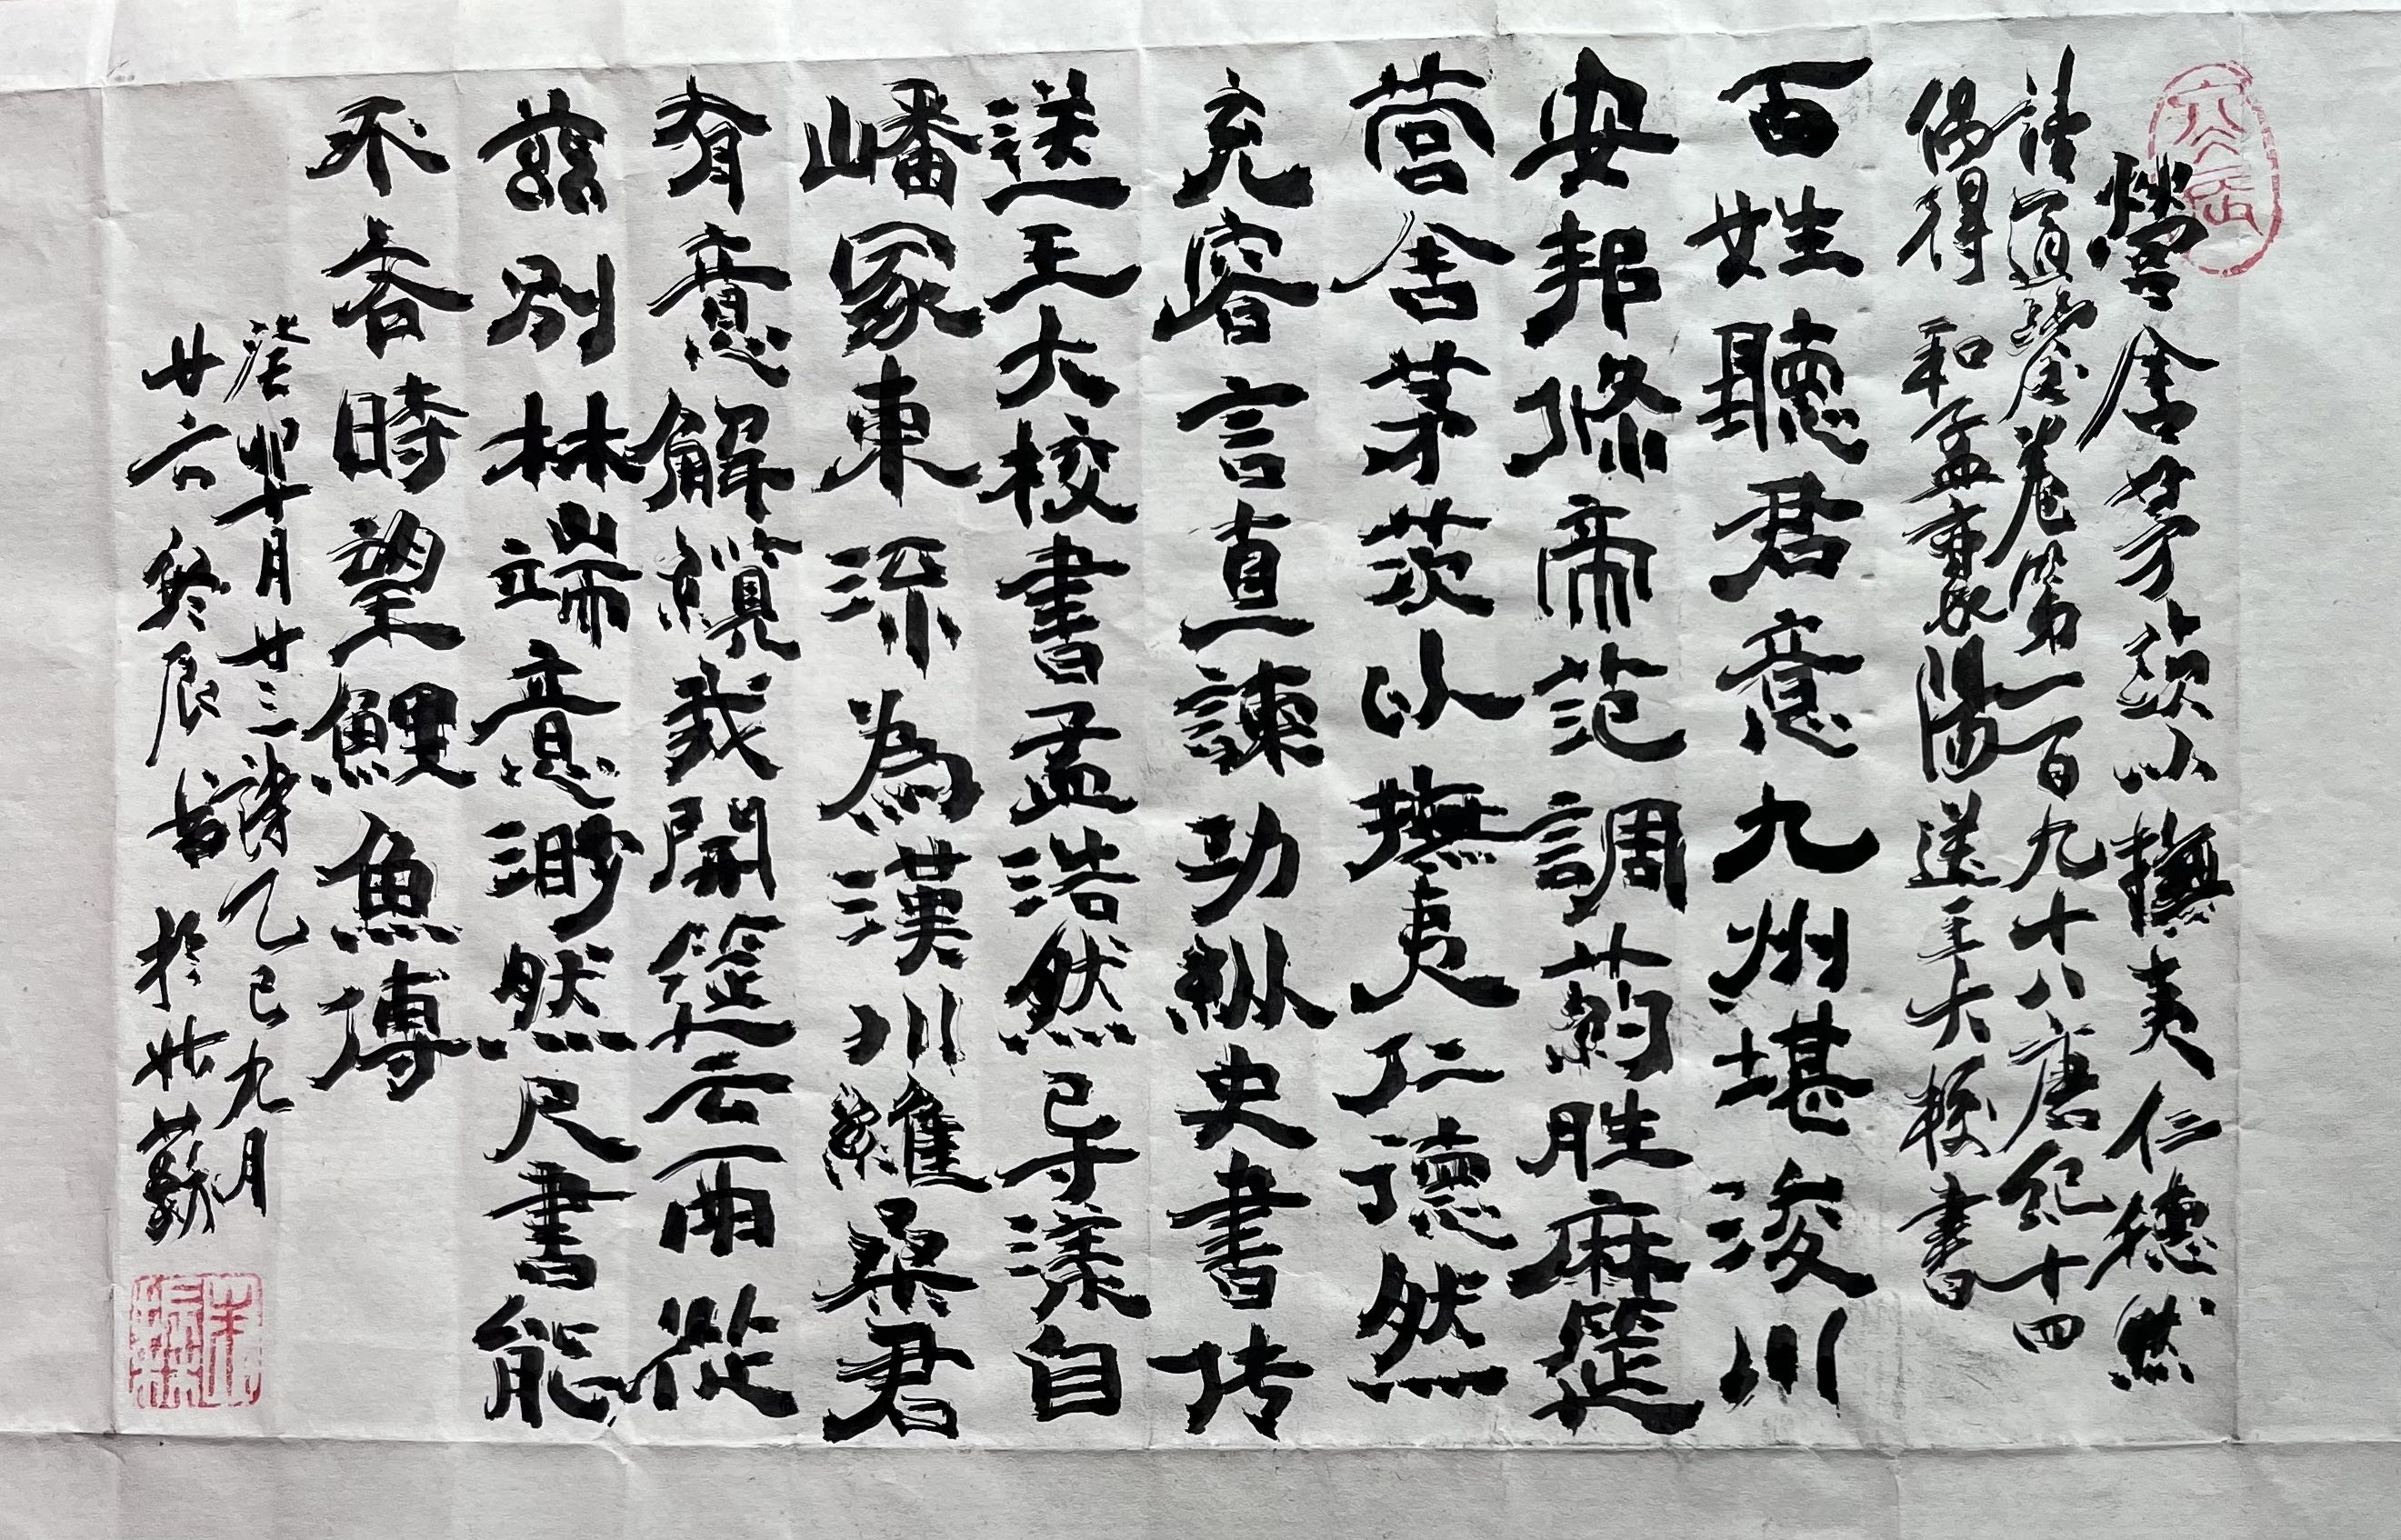 營舍茅茨以撫夷仁德然
讀通鑒卷第一百九十八唐紀十四
偶得 和孟襄陽送王大校書
百姓聽君意九州堪浚川
安邦修帝范調药胜麻筵
营舍茅茨以撫夷仁德然
充容言直諫功纵史书传
送王大校書孟浩然已导漾自
嶓冢東流為漢川維桑君
有意解纜我開筵云雨從
兹别林端意渺然尺書能
不吝時望鯉魚傳
癸卯十月廿三謄乙巳九月
廿六 於 蘇